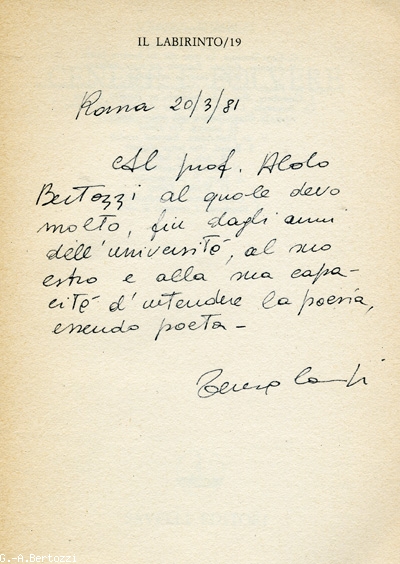 IL LABIRINTO/19
Roma 20/3/81
Al prof. Aldo
Bertozzi al quale devo
molto, fin dagli anni
dell'università, al suo
estro e alla sua capa-
cità d'intendere la poesia,
essendo poeta -
G.-A.Bertozzi